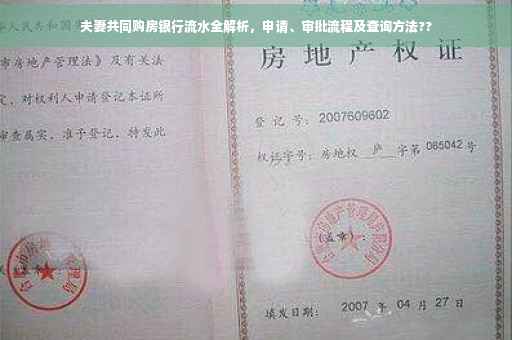 夫妻共同购房银行流水全解析，申请、审批流程及查询方法??
人民共和国
市房地产管理法》及有关法
定，对权利人申请登记本证所
审查属实，准予登记，特发此
房地产权证
登记号：2007609602
权证字号：房地权 庐 字第 065042 号
（盖章）：
房地产管理局
填发日期： 2007 年 04 月 27 日